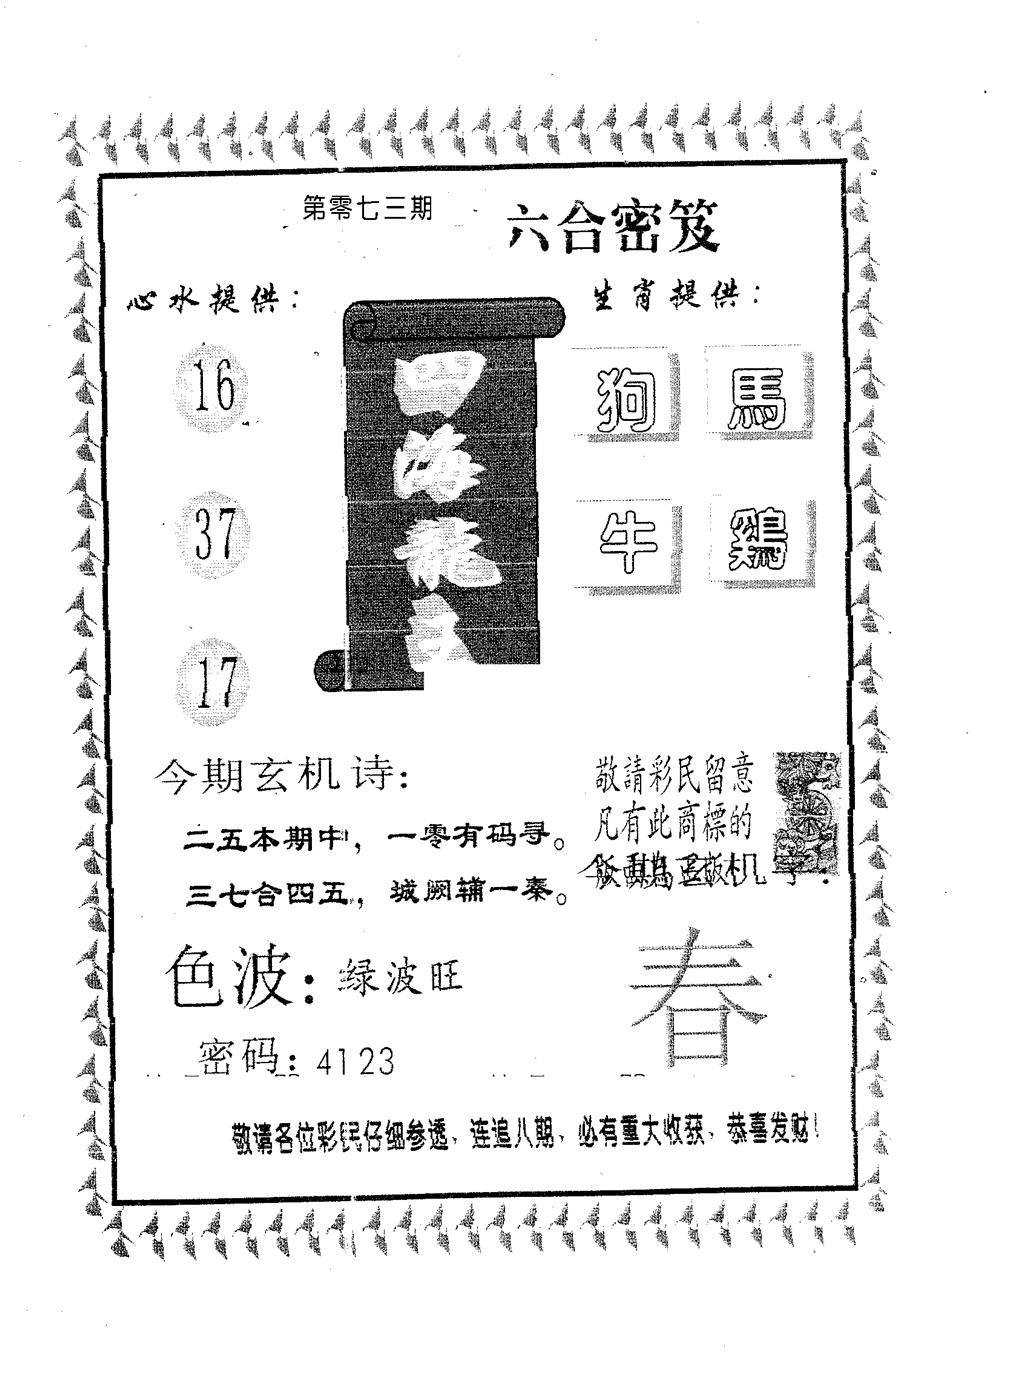 第零七三期
六合密笈
心水提供：
生肖提供：
16
37
17
四海龍
狗 馬
牛 鷄
今期玄机诗：
二五本期中，一零有码寻。
三七合四五，城阙辅一秦。
敬請彩民留意
凡有此商標的
色波：绿波旺
春
密码：4123
敬请各位彩民仔细参透、连追八期、必有重大收获、恭喜发财！